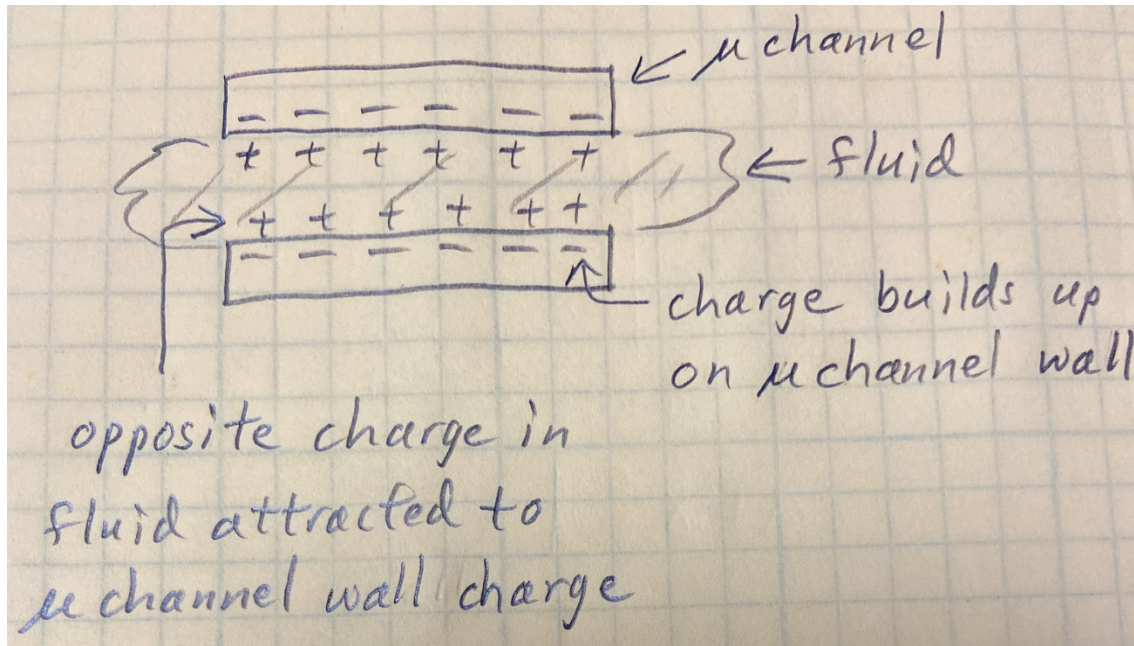 μ channel
fluid
charge builds up
on μ channel wall
opposite charge in
fluid attracted to
μ channel wall charge